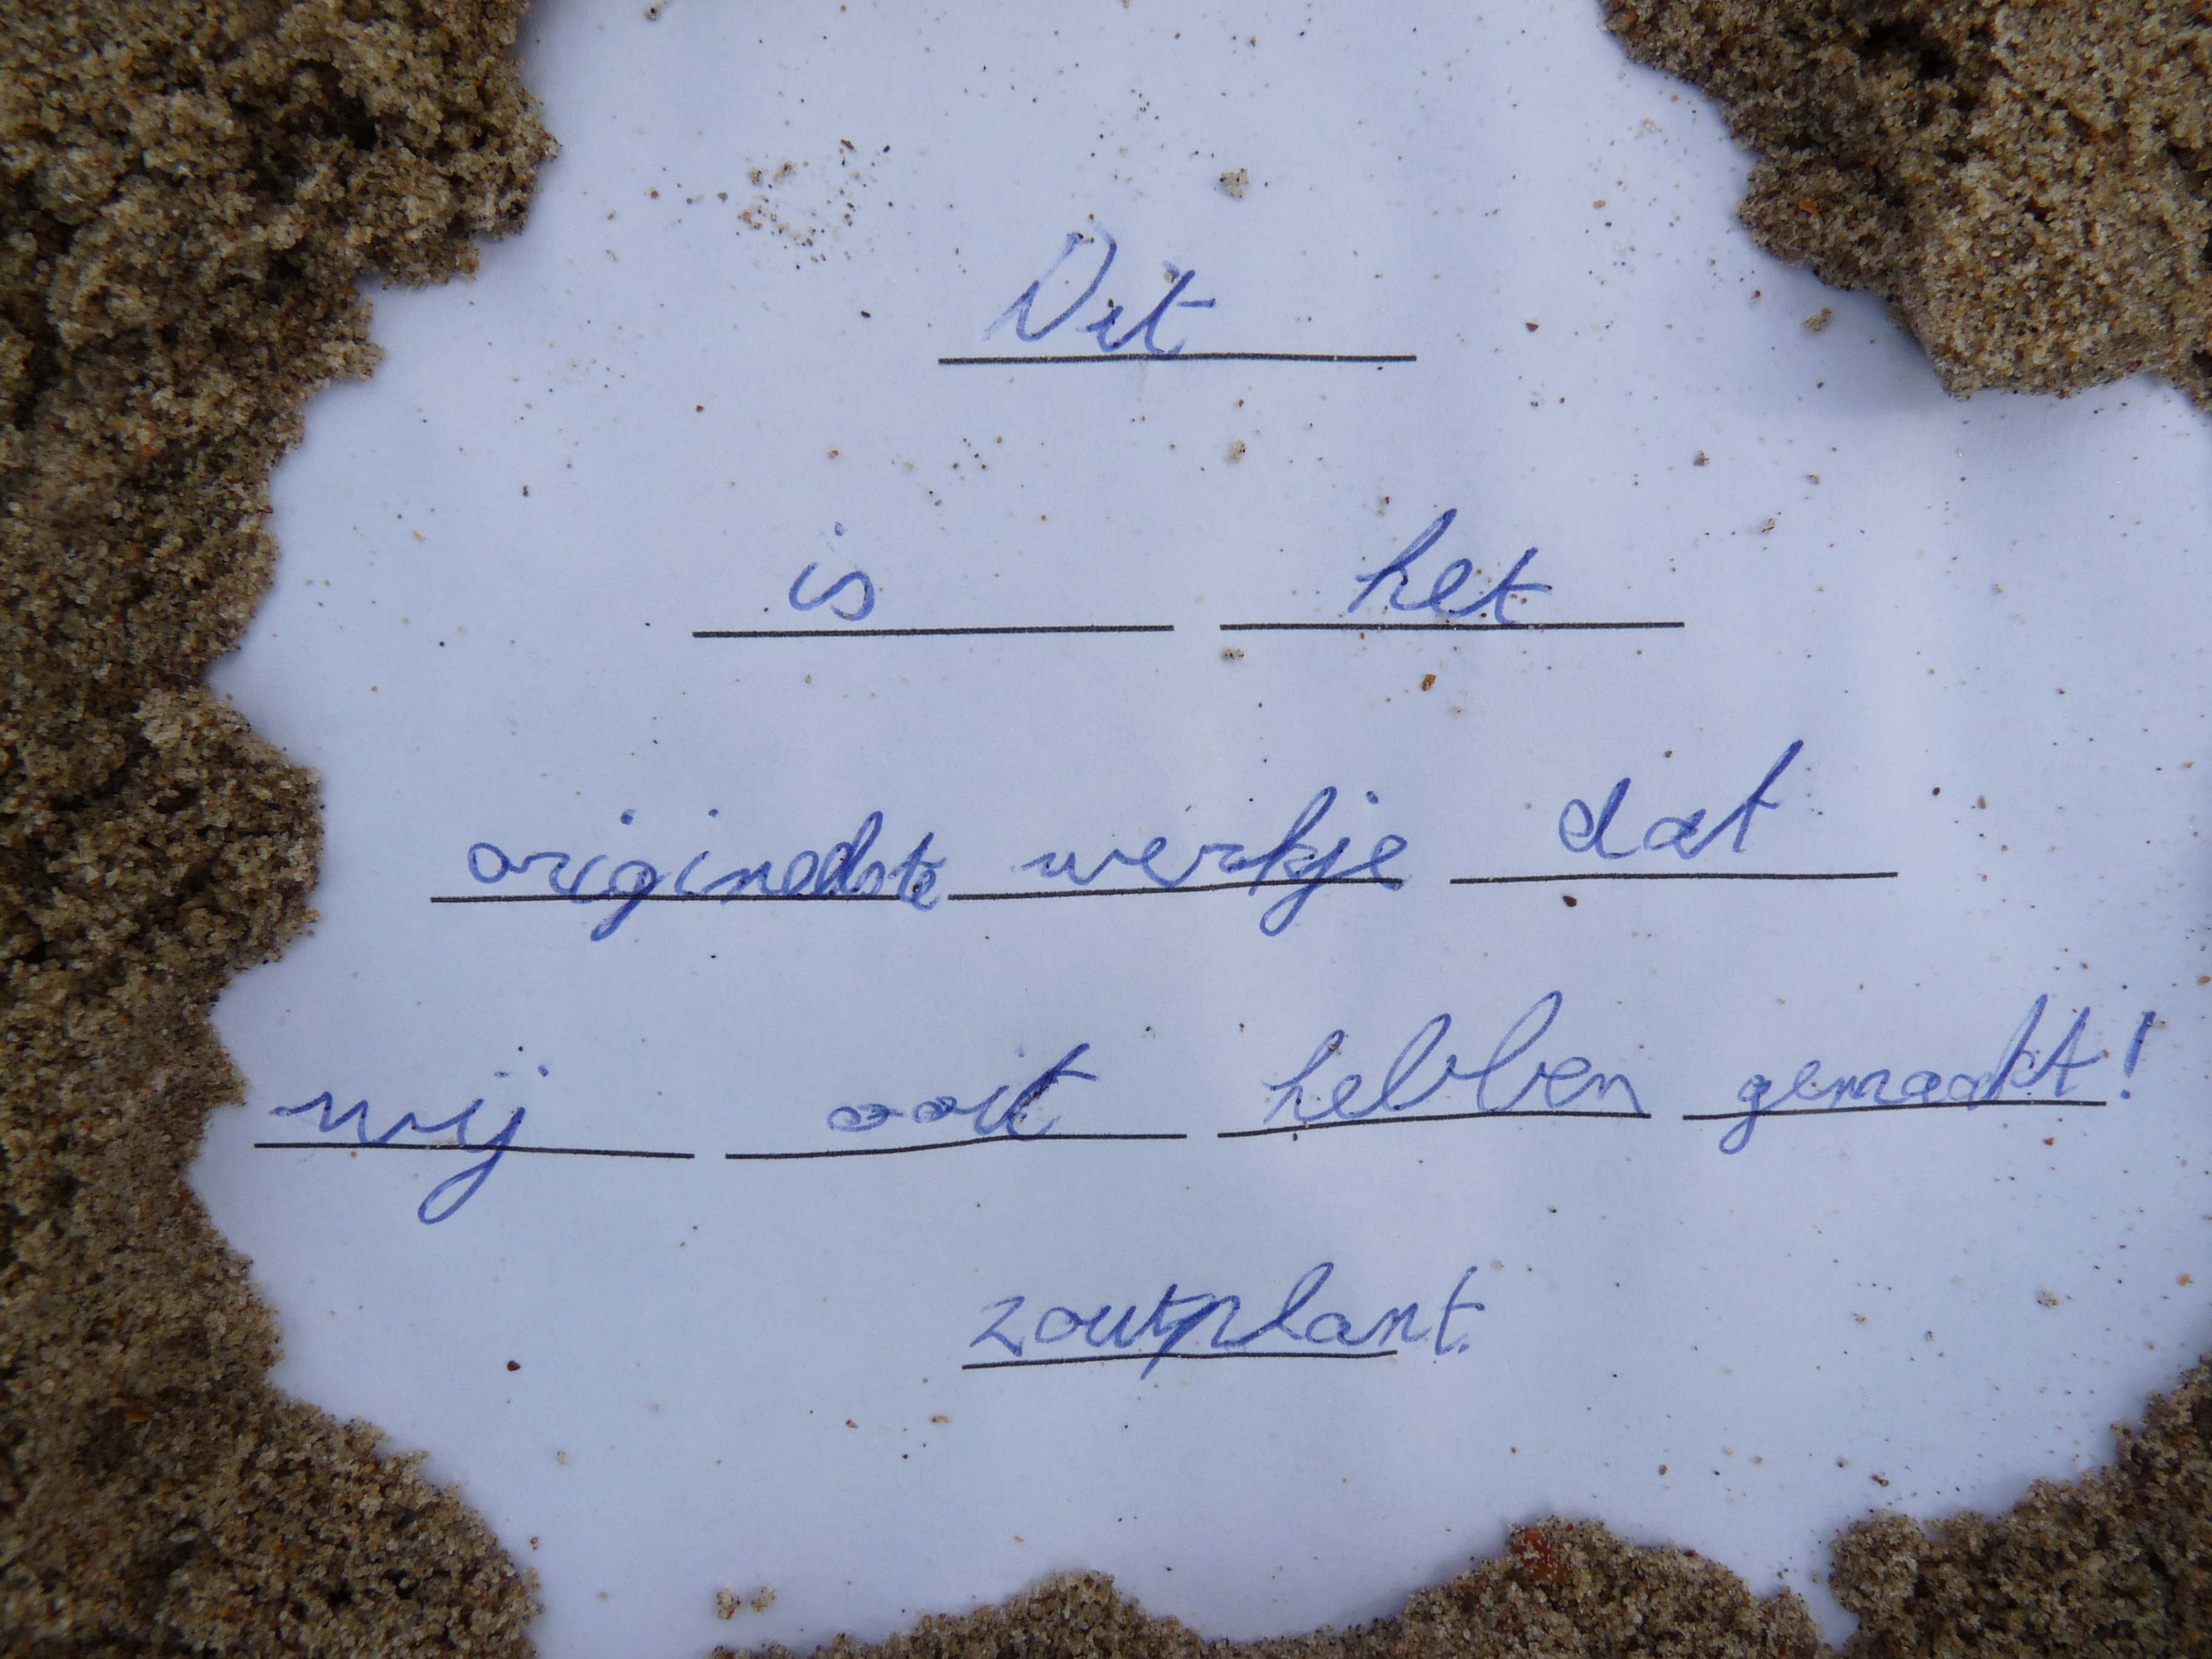 Dit
is het
originelste werkje dat
wij ooit hebben gemaakt!
zoutplant.